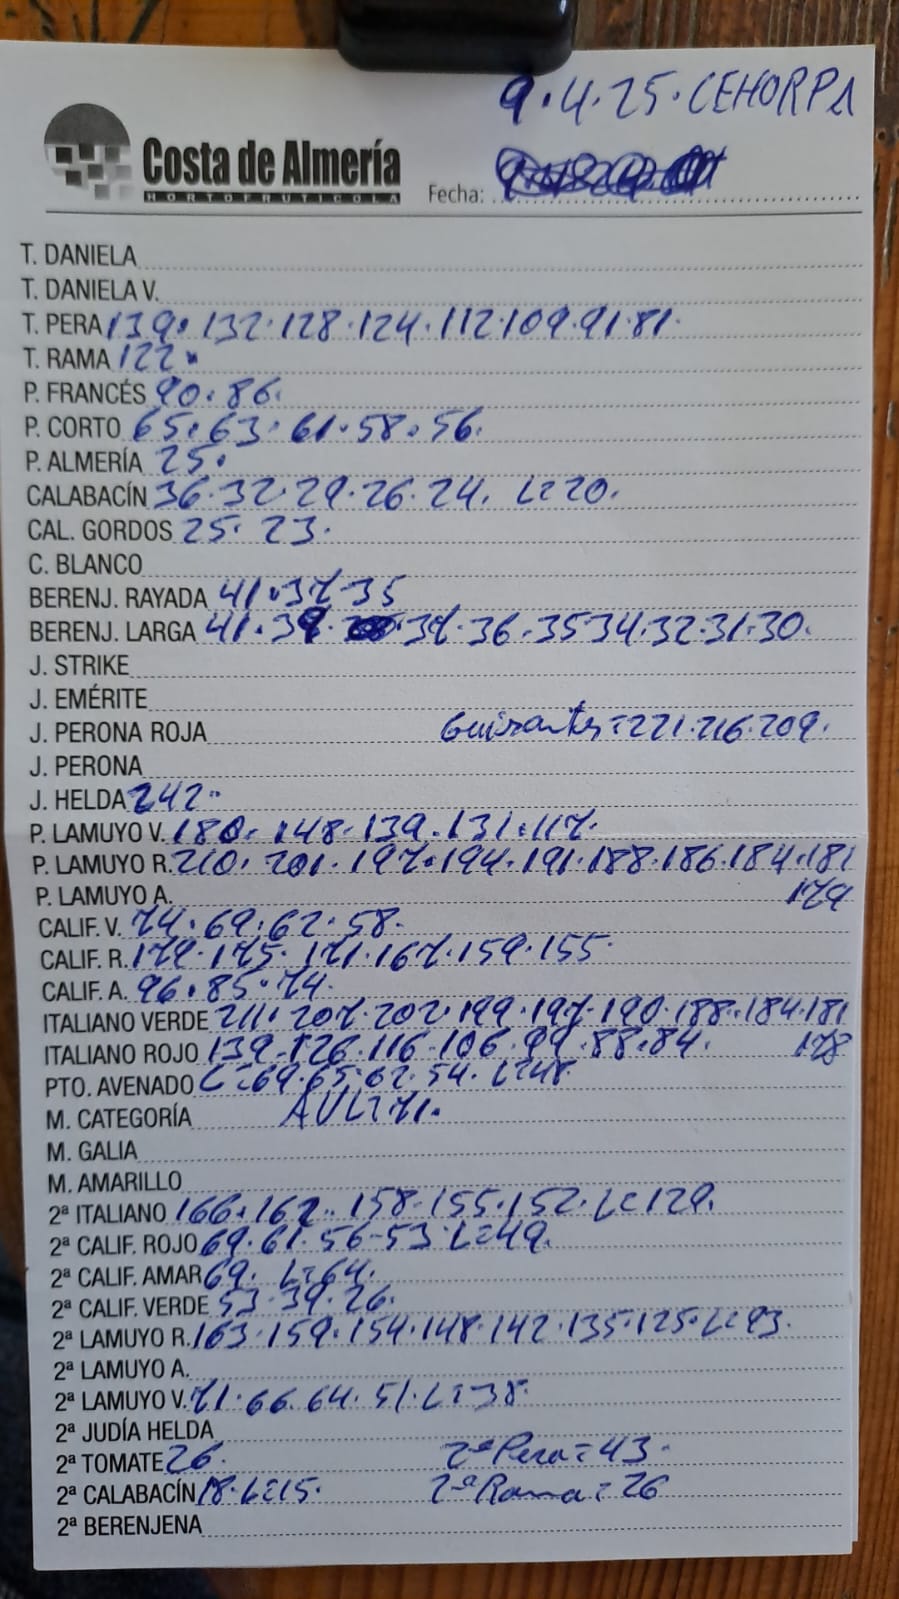 9.4.25.CEHORPA
Costa de Almería
HORTOFRUTICOLA
Fecha:
T. DANIELA
T. DANIELA V.
T. PERA 139. 132. 128. 124. 112. 109. 91. 81.
T. RAMA 122.
P. FRANCÉS 90. 86.
P. CORTO 65. 63. 61. 58. 56.
P. ALMERÍA 25.
CALABACÍN 36. 32. 29. 26. 24. L=20.
CAL. GORDOS 25. 23.
C. BLANCO
BERENJ. RAYADA 41. 37. 35
BERENJ. LARGA 41. 39. 37. 36. 35 34. 32. 31. 30.
J. STRIKE
J. EMÉRITE
J. PERONA ROJA Guisantes=221. 216. 209.
J. PERONA
J. HELDA 242..
P. LAMUYO V. 180. 148. 139. 131. 117.
P. LAMUYO R. 210. 201. 197. 194. 191. 188. 186. 184. 181
P. LAMUYO A. 179
CALIF. V. 74. 69. 62. 58.
CALIF. R. 179. 175. 171. 167. 159. 155
CALIF. A. 96. 85. 74.
ITALIANO VERDE 211. 207. 202. 199. 197. 190. 188. 184. 181
ITALIANO ROJO 139. 126. 116. 106. 99. 88. 84. 178
PTO. AVENADO C=69. 65. 62. 54. L=48.
M. CATEGORÍA AVL=71.
M. GALIA
M. AMARILLO
2ª ITALIANO 166. 162.. 158. 155. 152. L=129.
2ª CALIF. ROJO 69. 61. 56-53. L=49.
2ª CALIF. AMAR 69. L=64.
2ª CALIF. VERDE 53. 39. 26.
2ª LAMUYO R. 163. 159. 154. 148. 142. 135. 125. L=93.
2ª LAMUYO A.
2ª LAMUYO V. 71. 66. 64. 51. L=38.
2ª JUDÍA HELDA
2ª TOMATE 26. 2ª Pera=43.
2ª CALABACÍN 18. L=15. 2ª Rama=26
2ª BERENJENA